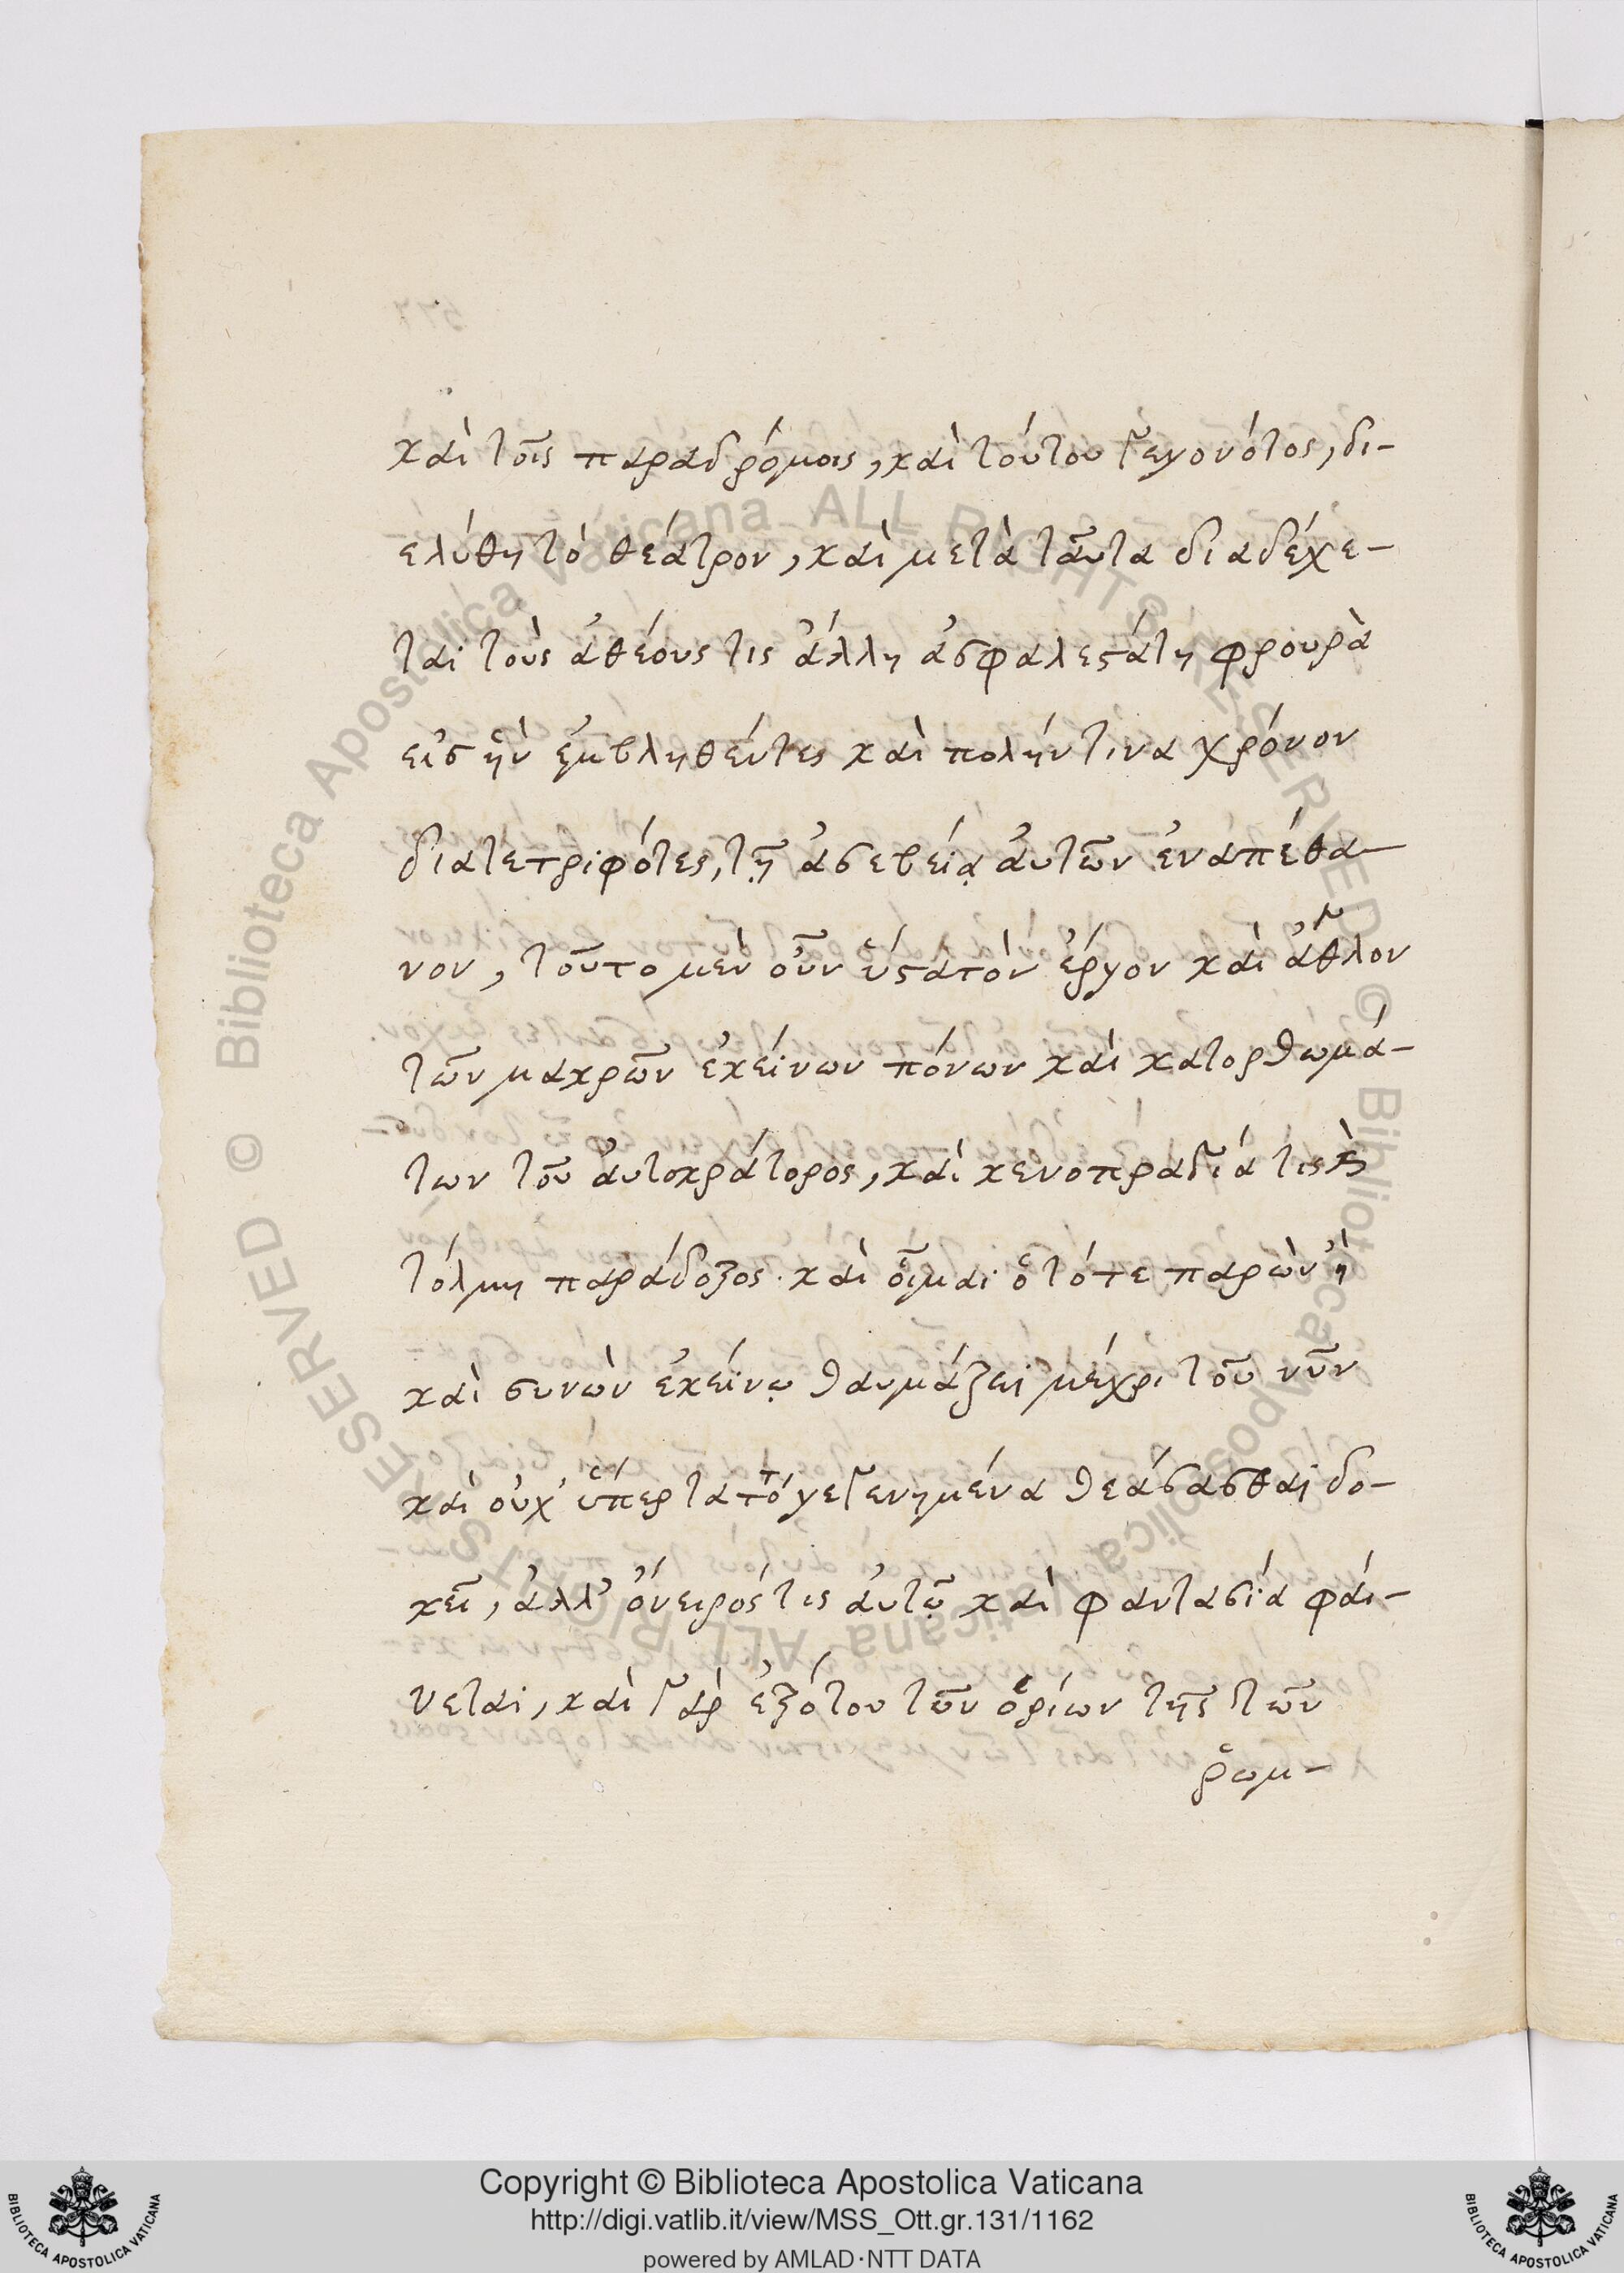 καὶ τοῖς παραδρόμοις, καὶ τούτου γεγονότος, δι-
ελύθη τὸ θέατρον, καὶ μετὰ ταῦτα διαδέχε-
ται τοὺς ἀθέους τις ἄλλη ἀσφαλεστάτη φρουρὰ
εἰς ἣν ἐμβληθέντες καὶ πολήν τινα χρόνον
διατετριφότες, τῇ ἀσεβείᾳ αὐτῶν ἐναπέθα-
νον, τοῦτο μὲν οὖν ὕστατὸν ἔργον καὶ ἆθλον
τῶν μακρῶν ἐκείνων πόνων καὶ κατορθωμά-
των τοῦ αὐτοκράτορος, καὶ κενοπραγία τις καὶ
τόλμη παράδοξος. καὶ οἶμαι ὁ τότε παρὼν ἢ
καὶ συνὼν ἐκείνῳ θαυμάζει μέχρι τοῦ νῦν
καὶ οὐχ' ὕπερ τατό γεγενημένα θεάσασθαι δο-
κεῖ, ἀλλ' ὄνειρός τις αὐτῷ καὶ φαντασία φαί-
νεται, καὶ γὰρ ἐξότου τῶν ὁρίων τῆς τῶν
ῥωμ-
Copyright © Biblioteca Apostolica Vaticana
http://digi.vatlib.it/view/MSS_Ott.gr.131/1162
powered by AMLAD·NTT DATA
BIBLIOTECA APOSTOLICA VATICANA
BIBLIOTECA APOSTOLICA VATICANA
© Biblioteca Apostolica Vaticana ALL RIGHTS RESERVED © Biblioteca Apostolica Vaticana ALL RIGHTS RESERVED